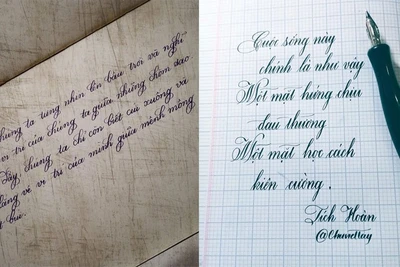 chúng ta từng nhìn lên bầu trời và nghĩ
vị trí của chúng ta giữa những chòm sao
đây, chúng ta chỉ còn biết cúi xuống và
lắng về vị trí của mình giữa mênh mông
bụi.
Cuộc sống này
chính là như vậy
Một mặt hứng chịu
đau thương
Một mặt học cách
kiên cường.
Tích Hoàn
@Chandtay